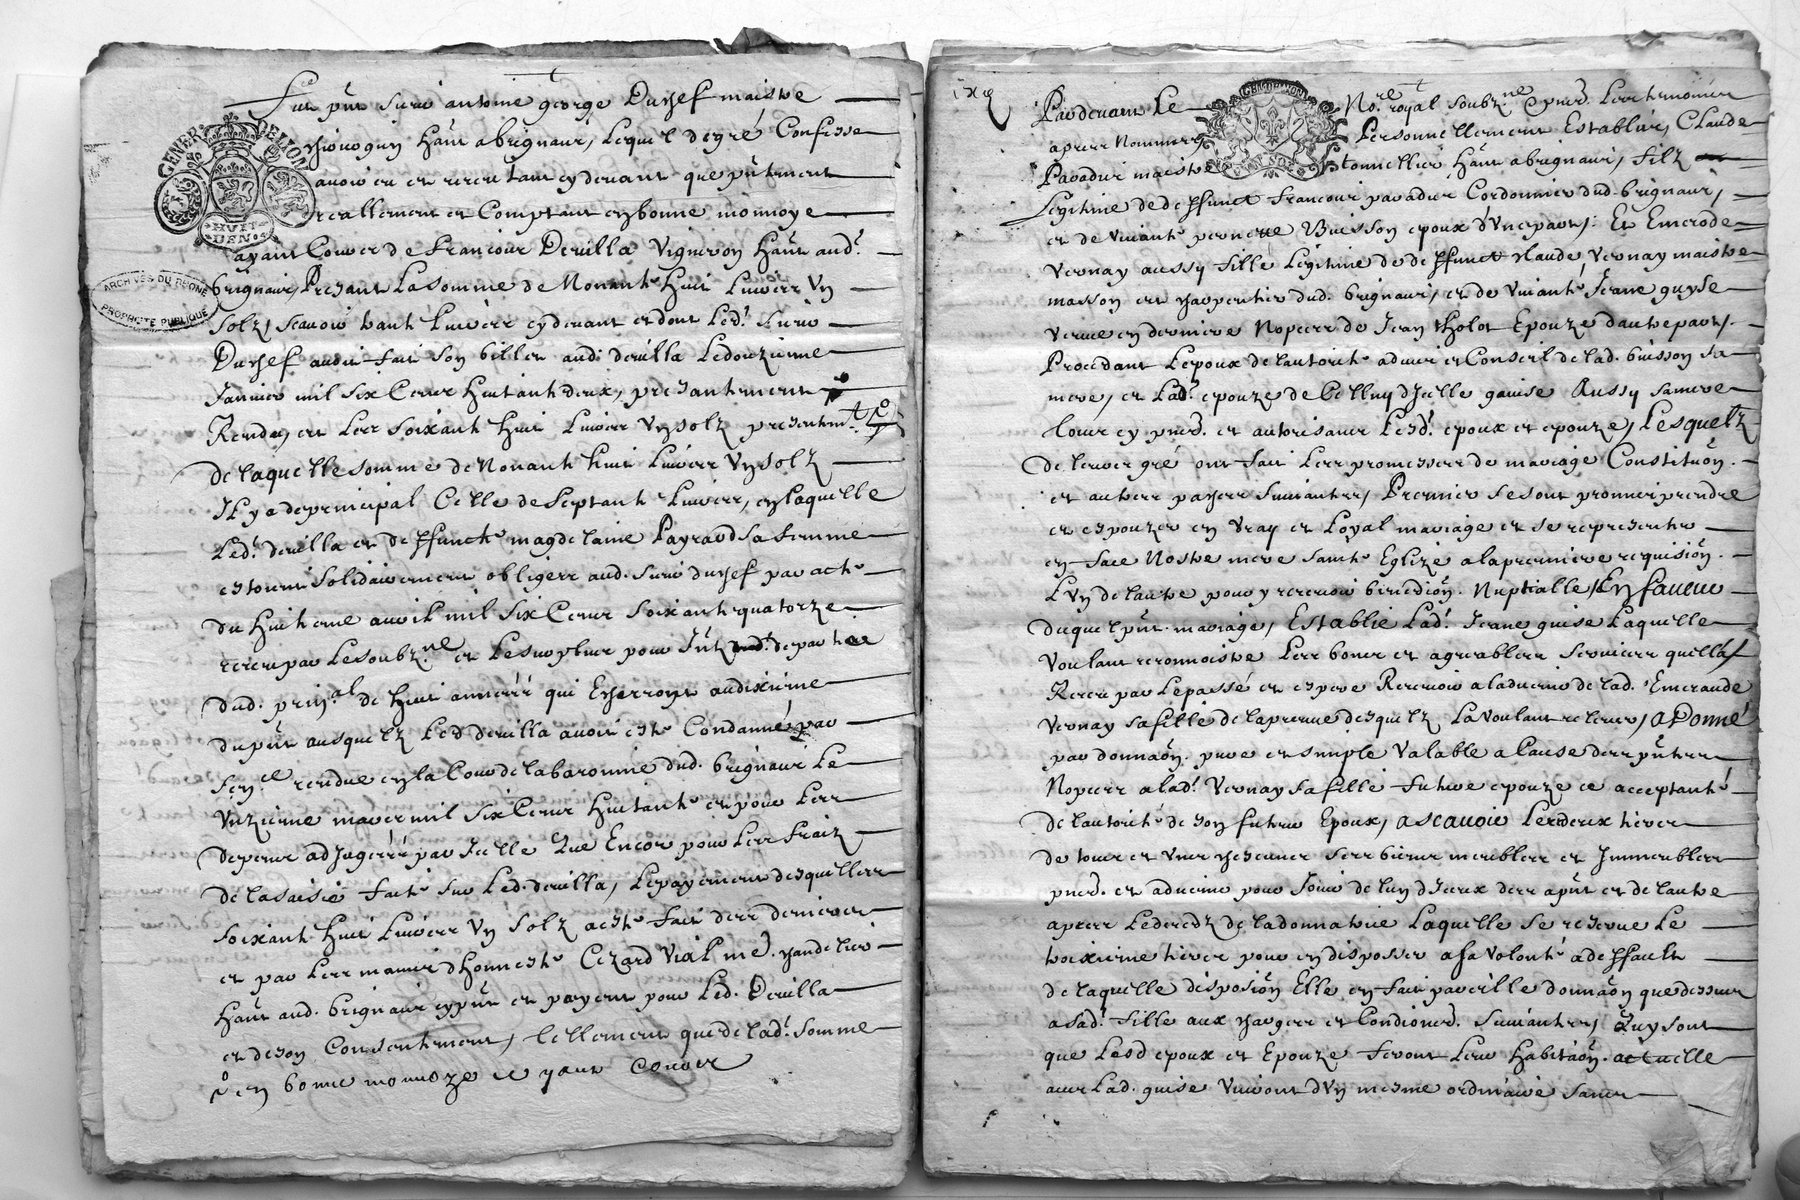 Fut pnt Sieur antoine george Dussef maistre
chirurgien hãnt a brignais, Lequel de gré Confesse
avoir eu et receu tant cy devant que pñtement
reallement et Comptant en bonne monnoye
ayant Cours de François Deville Vigneron hãnt aud.
brignais, Presant La somme de Nonante huit Livres Un
Solz, Scavoir trante Livres cy devant et dont Led. Sieur
Dussef audit fait Son billet aud. devilla Le douzieme
Janvier mil six Cens huitante deux, presentement
Rendu, et Les Soixante huit Livres Un Solz presentemt.
de laquelle somme de Nonante huit Livres Un Solz
Il y a de principal Celle de Septante Livres, en laquelle
Led. devilla et deffuncte magdelaine Payraud sa femme
estoient Solidairement obliges aud. Sieur dussef par acte
du huitieme avril mil Six Cens Soixante quatorze
receu par Le soubz.ne et Le surplus pour
dud. prin.al de huit annees qui Escherront au dixieme
du pñt ausquelz Led devilla avoit esté Condamné par
Sen.ce rendue en la Cour de la baronnie dud. brignais Le
Unzieme mars mil Six Cens huitante et pour Les
despens adjugéés par Icelle Que Encor pour Les fraiz
de la saisie faite sur Led. devilla, Le payement desquelles
soixante huit Livres Un Solz a esté fait des deniers
et par Les mains d'honneste Cezard Vial me. chandelier
hãnt aud. brignais cy pñt et payent pour Led. Devilla
et de son Consentement, tellement que de lad. somme
en bonne monnoye ayant cours
GENER DE LYON
HUIT DEN
ARCHIVES DU RHONE
PROPRIETE PUBLIQUE
Pardevant Le No.re royal soubz.ne et pnts. Les temoins
apres Nommes Personnellement Establis, CLaude
Paradis maistre tonnellier hãnt a brignais, filz
Legitime de deffunct François paradis Cordonnier dud. brignais,
et de vivante pernette Buisson epoux d'Une part, Et Emerode
Vernay aussy fille Legitime de deffunct Claude, Vernay maistre
masson et charpentier dud. brignais, et de vivante Jeane guyse
Veuve en dernieres Nopces de Jean tholot Epouze d'autre part,
Procedant L'epoux de l'autorité advis et Conseil de lad. buisson sa
mere, et Lad. epouze de Celluy d'Jcelle guise Aussy sa mere
tous cy pnts. et autorisans Lesd. epoux et epouze, Lesquelz
de leurs gré ont fait Les promesses de mariage Constituõn.
et autres paches Suivantes, Premier se sont promis prendre
et espouzer en Vray et Loyal mariage et se representer
en face Nostre mere Sainte Eglize a la premiere requisiõn.
L'Un de l'autre pour y recevoir benediõn. Nuptialle, En faveur
duquel pñt. mariage, Establie Lad. Jeane guise Laquelle
Voulant reconnoistre Les bons et agreables Services quella
Receu par Le passé et espere Recevoir a ladvenir de lad. Emeraude
Vernay sa fille de la preuve desquelz La voulant relever, a Donné
par donnaõn. pure et simple Valable a Cause des pñtes
Nopces a lad. Vernay sa fille future epouze ce acceptante
de l'autorité de son futur Epoux, a scavoir Les deux tiers
de tous et uns chescuns ses biens meubles et Immeubles
pnts. et advenir pour Jouir de l'un d'Jceux des a pñt et de l'autre
apres Le deceds de la donnatrice Laquelle se reserve Le
troixieme tiers pour en disposser a sa volonté a deffault
de laquelle disposiõn Elle en fait pareille donnaõn que dessus
a sad. fille aux charges et Condions. Suivantes, Quy sont
que Lesd epoux et Epouze feront Leur habitaõn. actuelle
avec Lad. guise Vivront d'Un mesme ordinaire sans